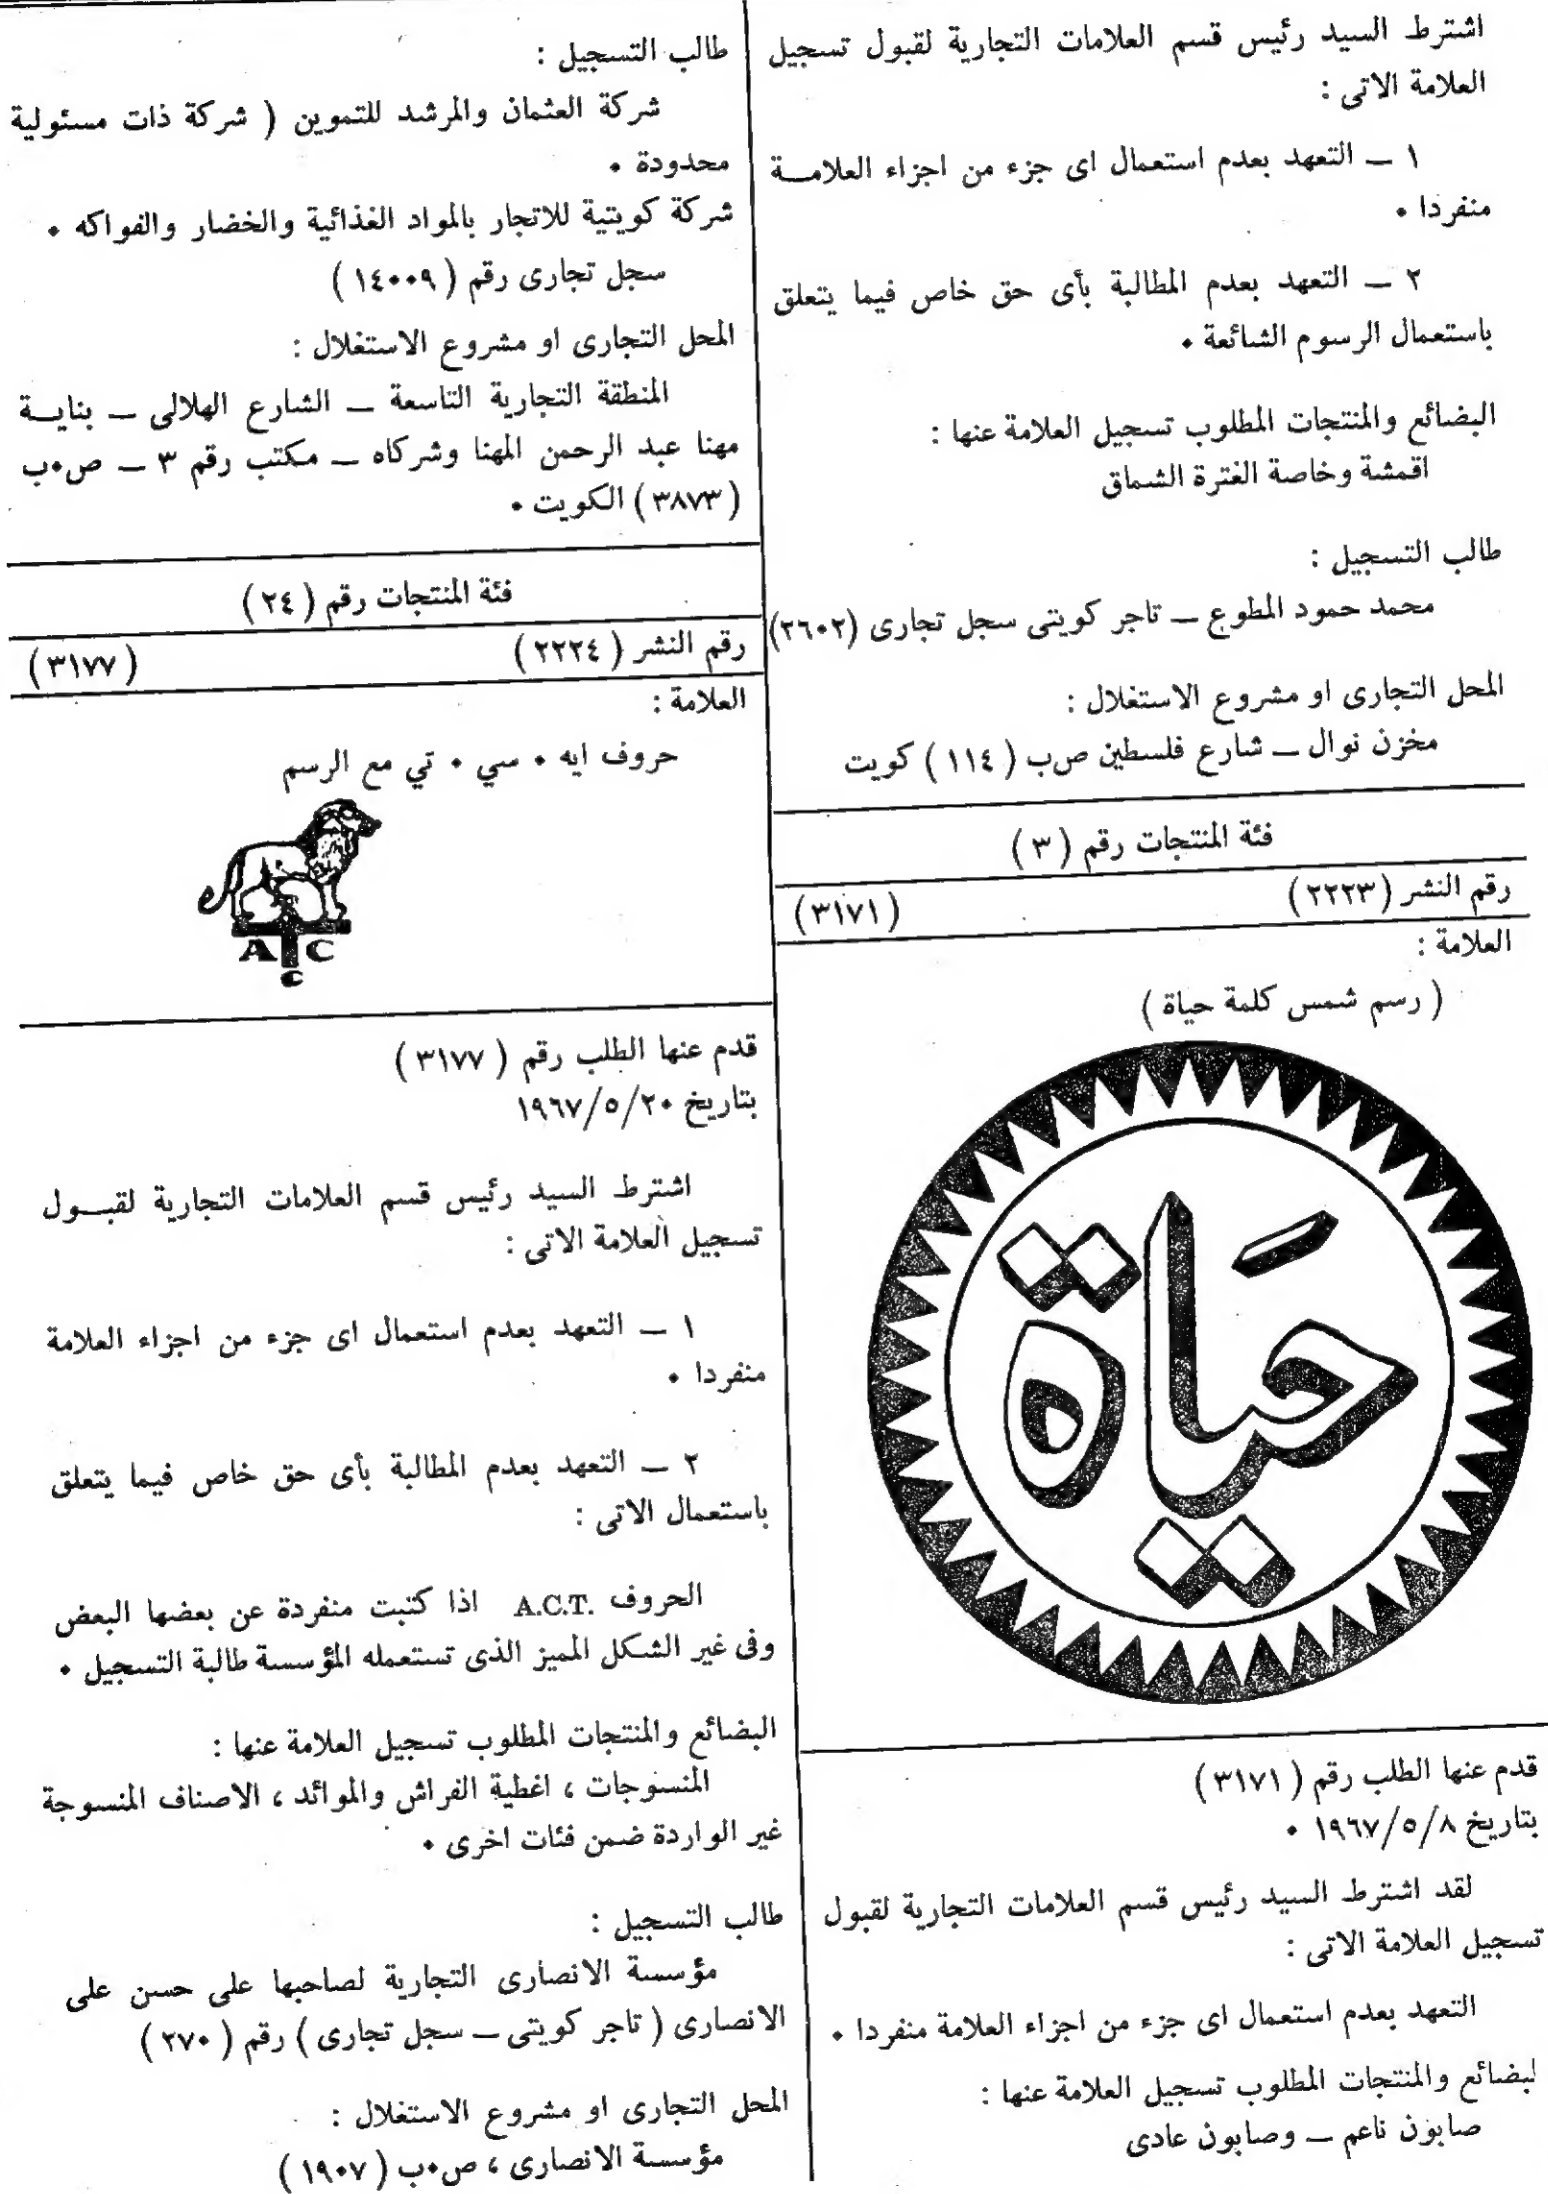 اشترط السيد رئيس قسم العلامات التجارية لقبول تسجيل
العلامة الاتى :
١ ــ التعهد بعدم استعمال اى جزء من اجزاء العلامــة
منفردا ٠
٢ ــ التعهد بعدم المطالبة بأى حق خاص فيما يتعلق
باستعمال الرسوم الشائعة ٠
البضائع والمنتجات المطلوب تسجيل العلامة عنها :
اقمشة وخاصة الغترة الشماق
طالب التسجيل :
محمد حمود المطوع ــ تاجر كويتى سجل تجارى (٢٦٠٢)
المحل التجارى او مشروع الاستغلال :
مخزن نوال ــ شارع فلسطين ص٠ب ( ١١٤ ) كويت
فئة المنتجات رقم ( ٣ )
رقم النشر ( ٢٢٢٣ ) ( ٣١٧١ )
العلامة :
( رسم شمس كلمة حياة )
حَيَاة
قدم عنها الطلب رقم ( ٣١٧١ )
بتاريخ ١٩٦٧/٥/٨ ٠
لقد اشترط السيد رئيس قسم العلامات التجارية لقبول
تسجيل العلامة الاتى :
التعهد بعدم استعمال اى جزء من اجزاء العلامة منفردا ٠
لبضائع والمنتجات المطلوب تسجيل العلامة عنها :
صابون ناعم ــ وصابون عادى
طالب التسجيل :
شركة العثمان والمرشد للتموين ( شركة ذات مسئولية
محدودة ٠
شركة كويتية للاتجار بالمواد الغذائية والخضار والفواكه ٠
سجل تجارى رقم ( ١٤٠٠٩ )
المحل التجارى او مشروع الاستغلال :
المنطقة التجارية التاسعة ــ الشارع الهلالى ــ بنايــة
مهنا عبد الرحمن المهنا وشركاه ــ مكتب رقم ٣ ــ ص٠ب
( ٣٨٧٣ ) الكويت ٠
فئة المنتجات رقم ( ٢٤ )
رقم النشر ( ٢٢٢٤ ) ( ٣١٧٧ )
العلامة :
حروف ايه ٠ سي ٠ تي مع الرسم
A C
C
قدم عنها الطلب رقم ( ٣١٧٧ )
بتاريخ ١٩٦٧/٥/٢٠
اشترط السيد رئيس قسم العلامات التجارية لقبــول
تسجيل العلامة الاتى :
١ ــ التعهد بعدم استعمال اى جزء من اجزاء العلامة
منفردا ٠
٢ ــ التعهد بعدم المطالبة بأى حق خاص فيما يتعلق
باستعمال الاتى :
الحروف A.C.T. اذا كتبت منفردة عن بعضها البعض
وفى غير الشكل المميز الذى تستعمله المؤسسة طالبة التسجيل ٠
البضائع والمنتجات المطلوب تسجيل العلامة عنها :
المنسوجات ، اغطية الفراش والموائد ، الاصناف المنسوجة
غير الواردة ضمن فئات اخرى ٠
طالب التسجيل :
مؤسسة الانصارى التجارية لصاحبها على حسن على
الانصارى ( تاجر كويتى ــ سجل تجارى ) رقم ( ٢٧٠ )
المحل التجارى او مشروع الاستغلال :
مؤسسة الانصارى ، ص٠ب ( ١٩٠٧ )